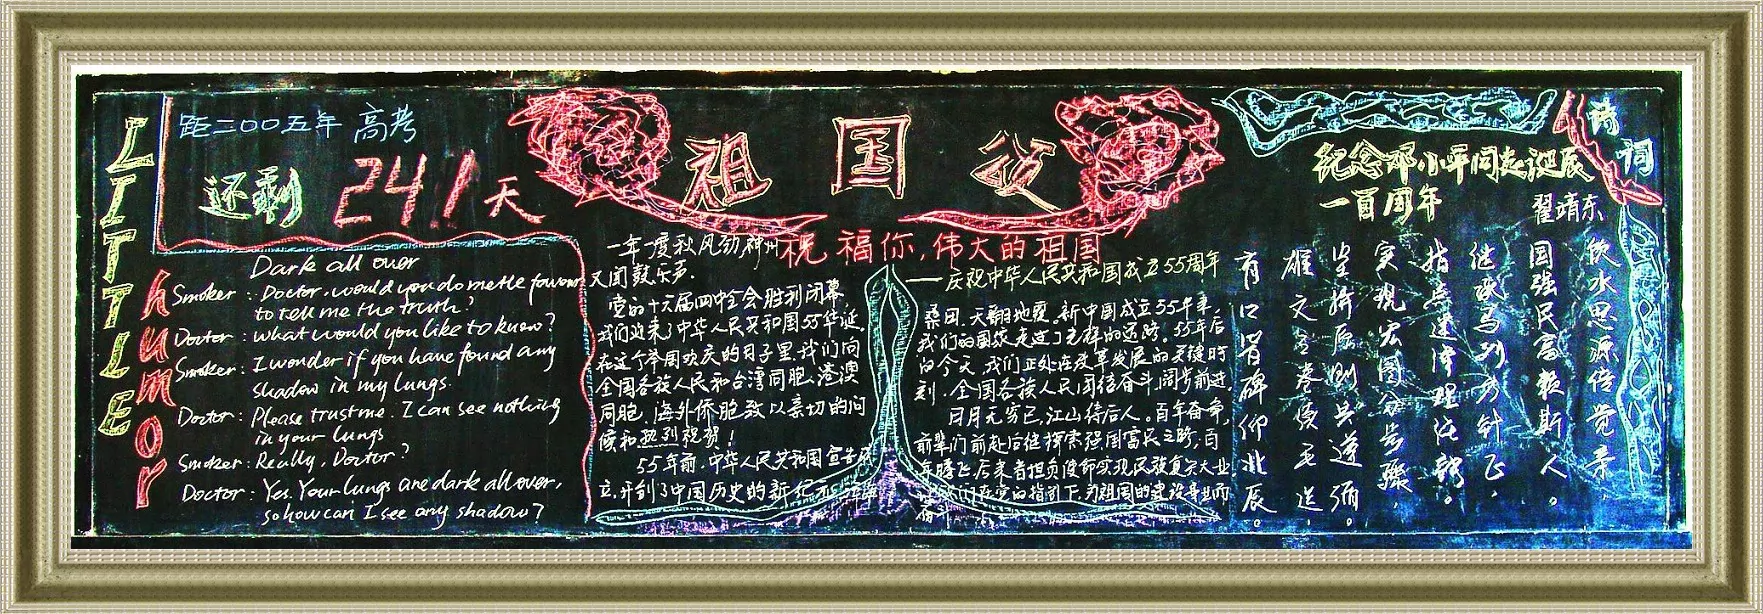 LITTLE
humor
距二〇〇五年 高考
还剩 241 天
Dark all over
Smoker: Doctor, would you do me the favour
to tell me the truth?
Doctor: what would you like to know?
Smoker: I wonder if you have found any
shadow in my lungs.
Doctor: Please trust me. I can see nothing
in your lungs
Smoker: Really, Doctor?
Doctor: Yes. Your lungs are dark all over,
so how can I see any shadow?
祖国
祝福你,伟大的祖国
——庆祝中华人民共和国成立55周年
一年一度秋风劲神州
又闻鼓乐声.
党的十六届四中全会胜利闭幕,
我们迎来了中华人民共和国55华诞.
在这个举国欢庆的日子里.我们向
全国各族人民和台湾同胞、港澳
同胞、海外侨胞致以亲切的问
候和热烈祝贺!
55年前.中华人民共和国宣告成
立,开创了中国历史的新纪元
天翻地覆。新中国成立55年来,
我们的国家走过了光辉的道路。55年后
的今天,我们正处在改革发展的关键时
刻.全国各族人民团结奋斗,阔步前进.
日月无穷已,江山待后人。百年奋争,
前辈们前赴后继探索强国富民之路;百
年腾飞,后来者担负使命实现民族复兴大业
在党的指引下,为祖国的建设事业而
诗词
纪念邓小平同志诞辰
一百周年
翟靖东
饮水思源倍觉亲,
国强民富赖斯人。
继承马列方针飞,
指点迷津理论。
实现宏图步骤,
坚持原则
雄文
有口皆碑仰北辰。